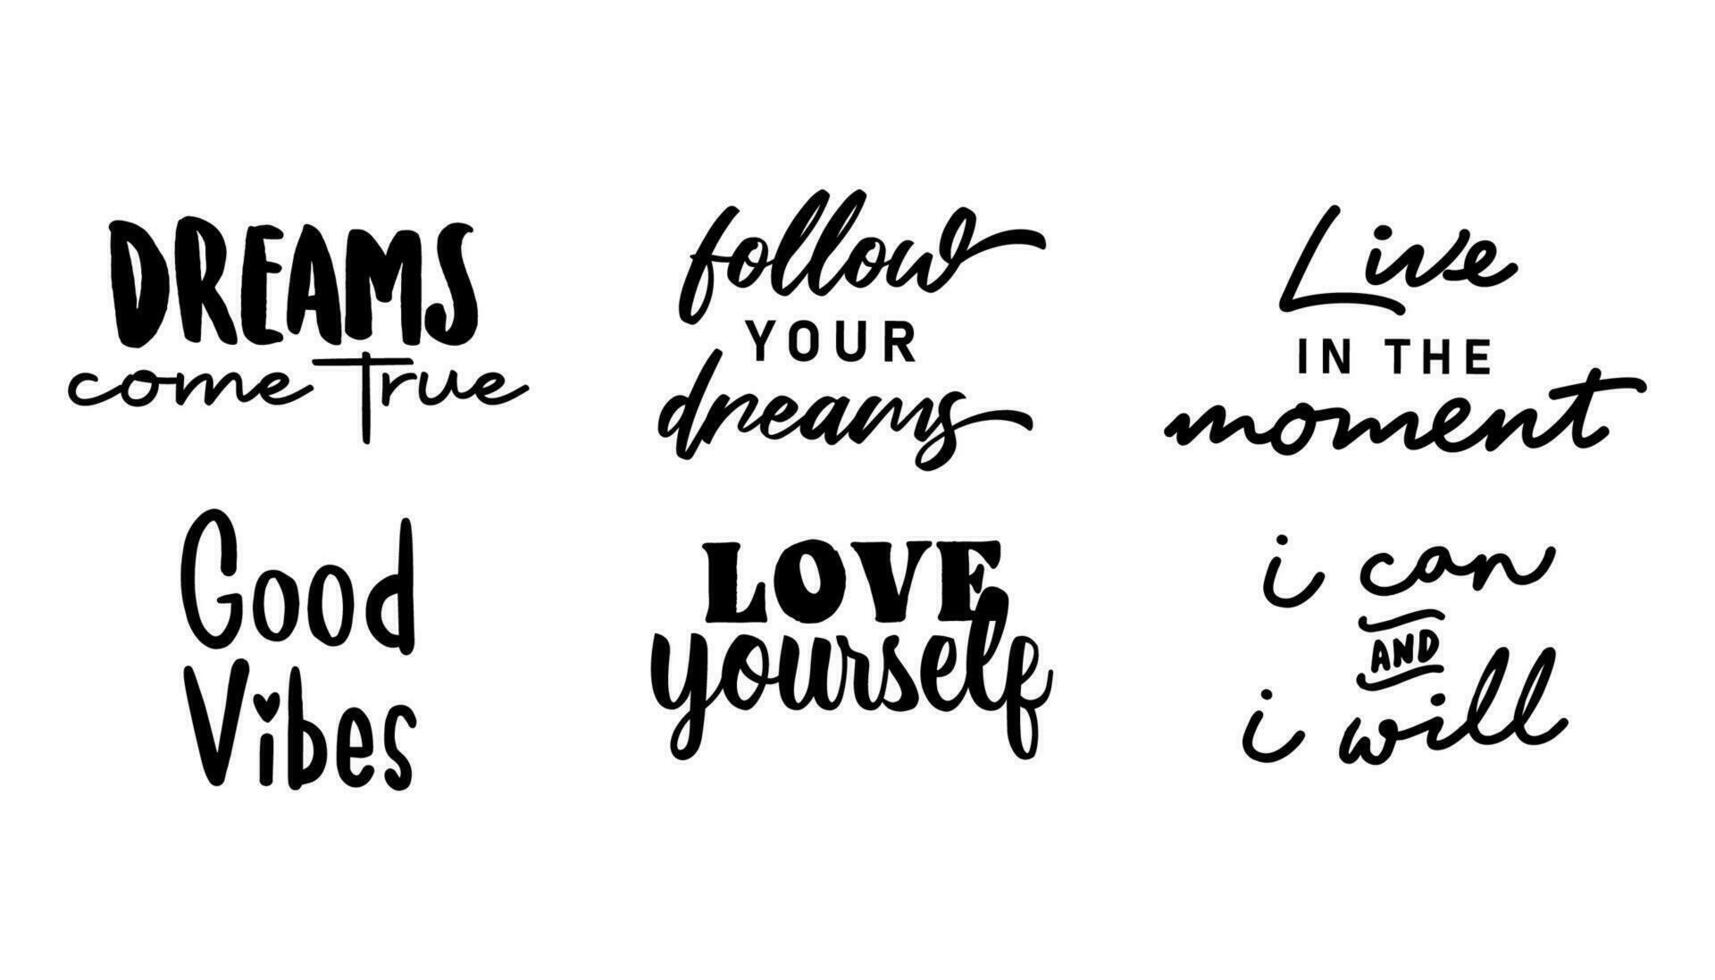 DREAMS
come True
follow
YOUR
dreams
Live
IN THE
moment
Good
Vibes
LOVE
yourself
i can
AND
i will